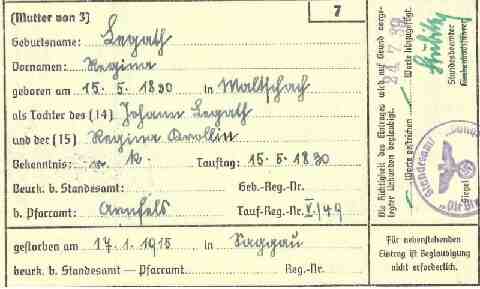 (Mutter von 3) 7
Geburtsname: Legath
Vornamen: Regina
geboren am 15. 5. 1830 in Maltschach
als Tochter des (14) Johann Legath
und der (15) Regina Krollin
Bekenntnis: r. k. Tauftag: 15. 5. 1830
Beurk. b. Standesamt: Geb.-Reg.-Nr.
b. Pfarramt: Arnfels Tauf-Reg.-Nr. V./49
gestorben am 17. 1. 1915 in Saggau
beurk. b. Standesamt — Pfarramt Reg.-Nr.
Die Richtigkeit des Eintrages wird auf Grund vorge-
legter Urkunden beglaubigt.
24. 7. 39
Worte gestrichen Worte hinzugefügt.
Standesbeamter
Siegel
Standesamt
Für nebenstehenden
Eintrag ist Beglaubigung
nicht erforderlich.